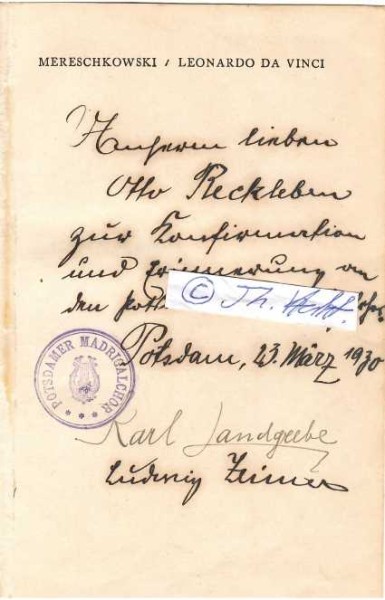 MERESCHKOWSKI / LEONARDO DA VINCI
Unserm lieben
Otto Reckleben
zur Konfirmation
und Erinnerung an
den
© Th. Hecht.
Potsdam, 23. März 1930
POTSDAMER MADRIGALCHOR
Karl Landgrebe
Ludwig